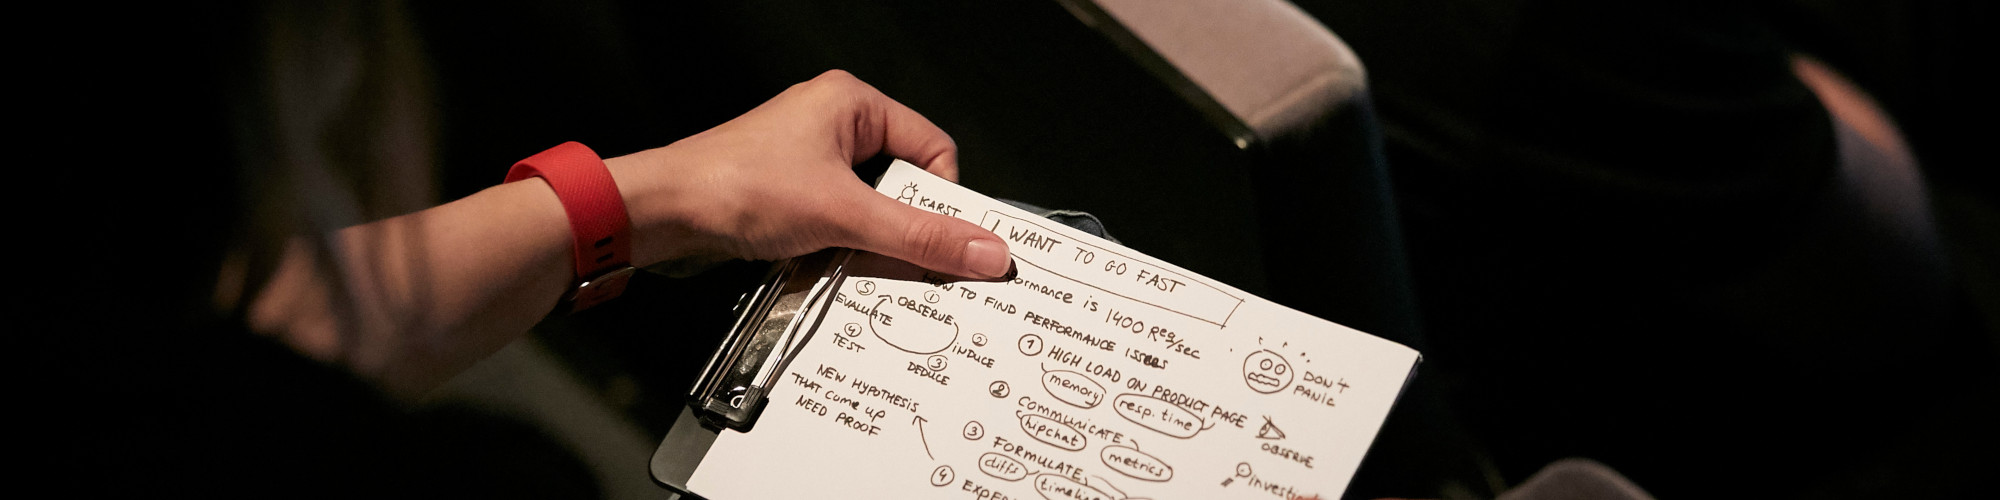 KARST
I WANT TO GO FAST
ormance is 1400 Req/sec
HOW TO FIND PERFORMANCE ISSUES
① OBSERVE
② INDUCE
③ DEDUCE
④ TEST
⑤ EVALUATE
NEW HYPOTHESIS
THAT come up
NEED PROOF
① HIGH LOAD ON PRODUCT PAGE
memory
resp. time
② COMMUNICATE
hipchat
metrics
③ FORMULATE
diffs
④
DON'T
PANIC
OBSERVE